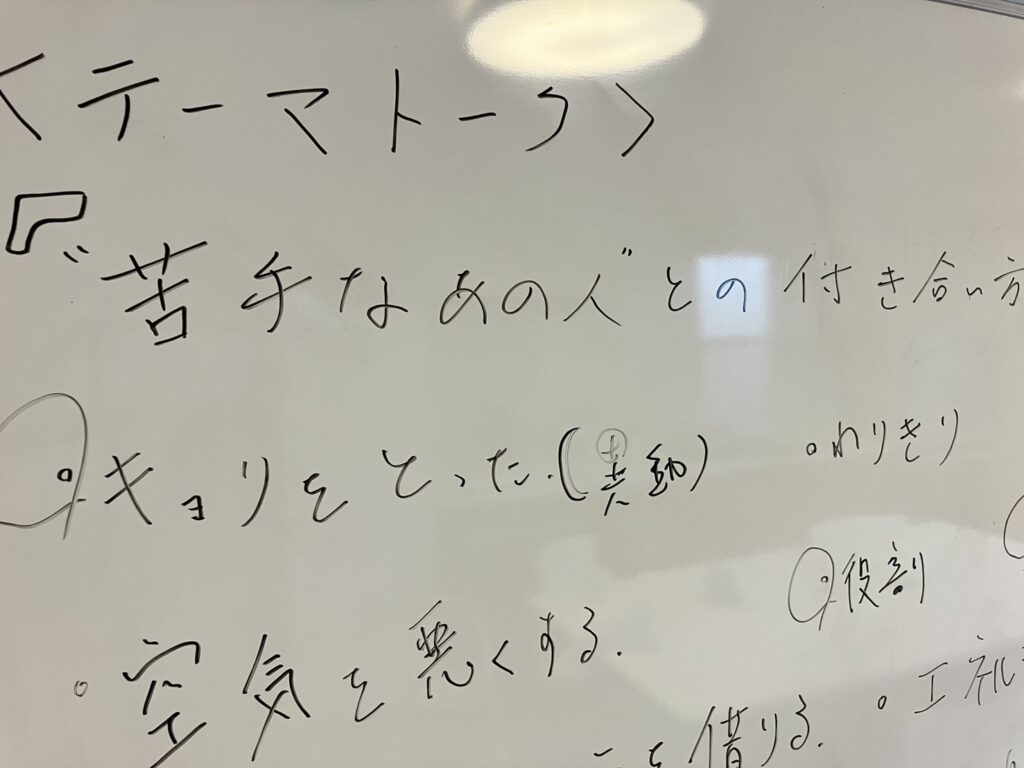 <テーマトーク>
『"苦手なあの人"との付き合い方
キョリをとった.(異動)
わりきり
役割
空気を悪くする.
エネル
を借りる.